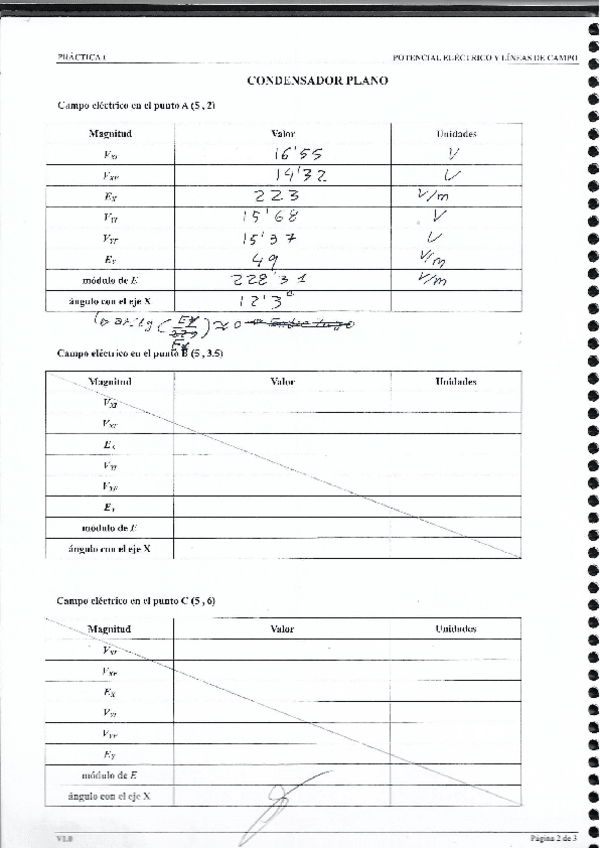 PRÁCTICA 1 POTENCIAL ELÉCTRICO Y LÍNEAS DE CAMPO
CONDENSADOR PLANO
Campo eléctrico en el punto A (5 , 2)
Magnitud Valor Unidades
V_XI 16'55 V
V_XF 14'32 V
E_X 223 V/m
V_YI 15'68 V
V_YF 15'37 V
E_Y 49 V/m
módulo de E 228'31 V/m
ángulo con el eje X 12'3º
Campo eléctrico en el punto B (5 , 3.5)
Magnitud Valor Unidades
V_XI
V_XF
E_X
V_YI
V_YF
E_Y
módulo de E
ángulo con el eje X
Campo eléctrico en el punto C (5 , 6)
Magnitud Valor Unidades
V_XI
V_XF
E_X
V_YI
V_YF
E_Y
módulo de E
ángulo con el eje X
V1.0 Página 2 de 3